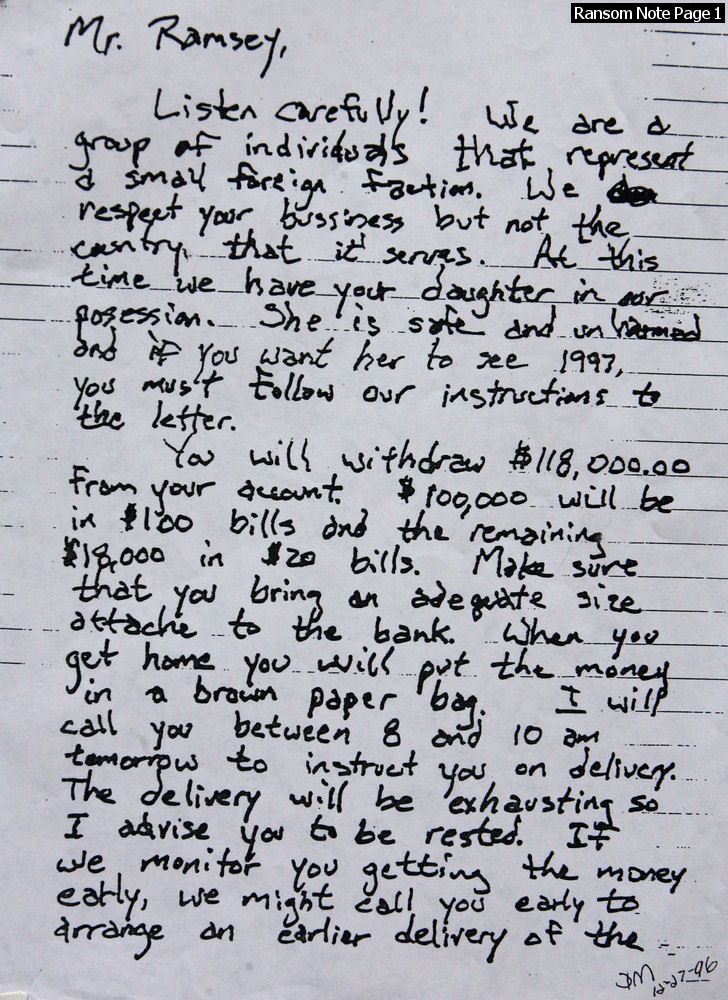 Ransom Note Page 1
Mr. Ramsey,
Listen carefully! We are a
group of individuals that represent
a small foreign faction. We
respect your bussiness but not the
country that it serves. At this
time we have your daughter in our
posession. She is safe and unharmed
and if you want her to see 1997,
you must follow our instructions to
the letter.
You will withdraw $118,000.00
from your account. $100,000 will be
in $100 bills and the remaining
$18,000 in $20 bills. Make sure
that you bring an adequate size
attache to the bank. When you
get home you will put the money
in a brown paper bag. I will
call you between 8 and 10 am
tomorrow to instruct you on delivery.
The delivery will be exhausting so
I advise you to be rested. If
we monitor you getting the money
early, we might call you early to
arrange an earlier delivery of the
12-27-96